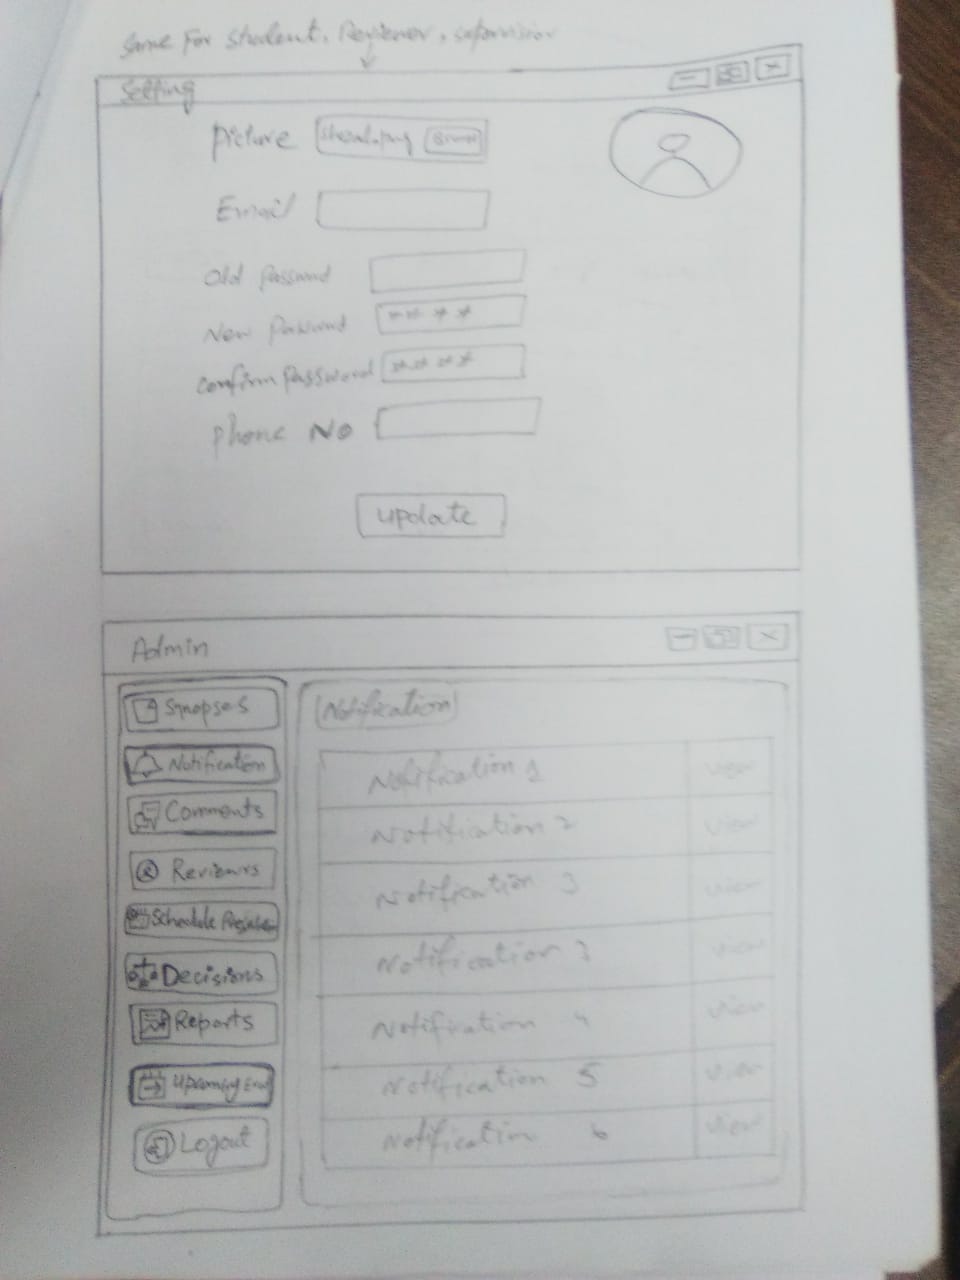 Same For Student, Reviewer, supervisior
Setting
Picture
Email
Old Password
New Password ****
Confirm Password ****
Phone No
Update
Admin
Synopses
Notification
Comments
Reviewrs
Schedule
Decisions
Reports
Upcoming
Logout
Notification
Notification 1 view
Notification 2 view
Notification 3 view
Notification 3 view
Notification 4 view
Notification 5 view
Notification 6 view